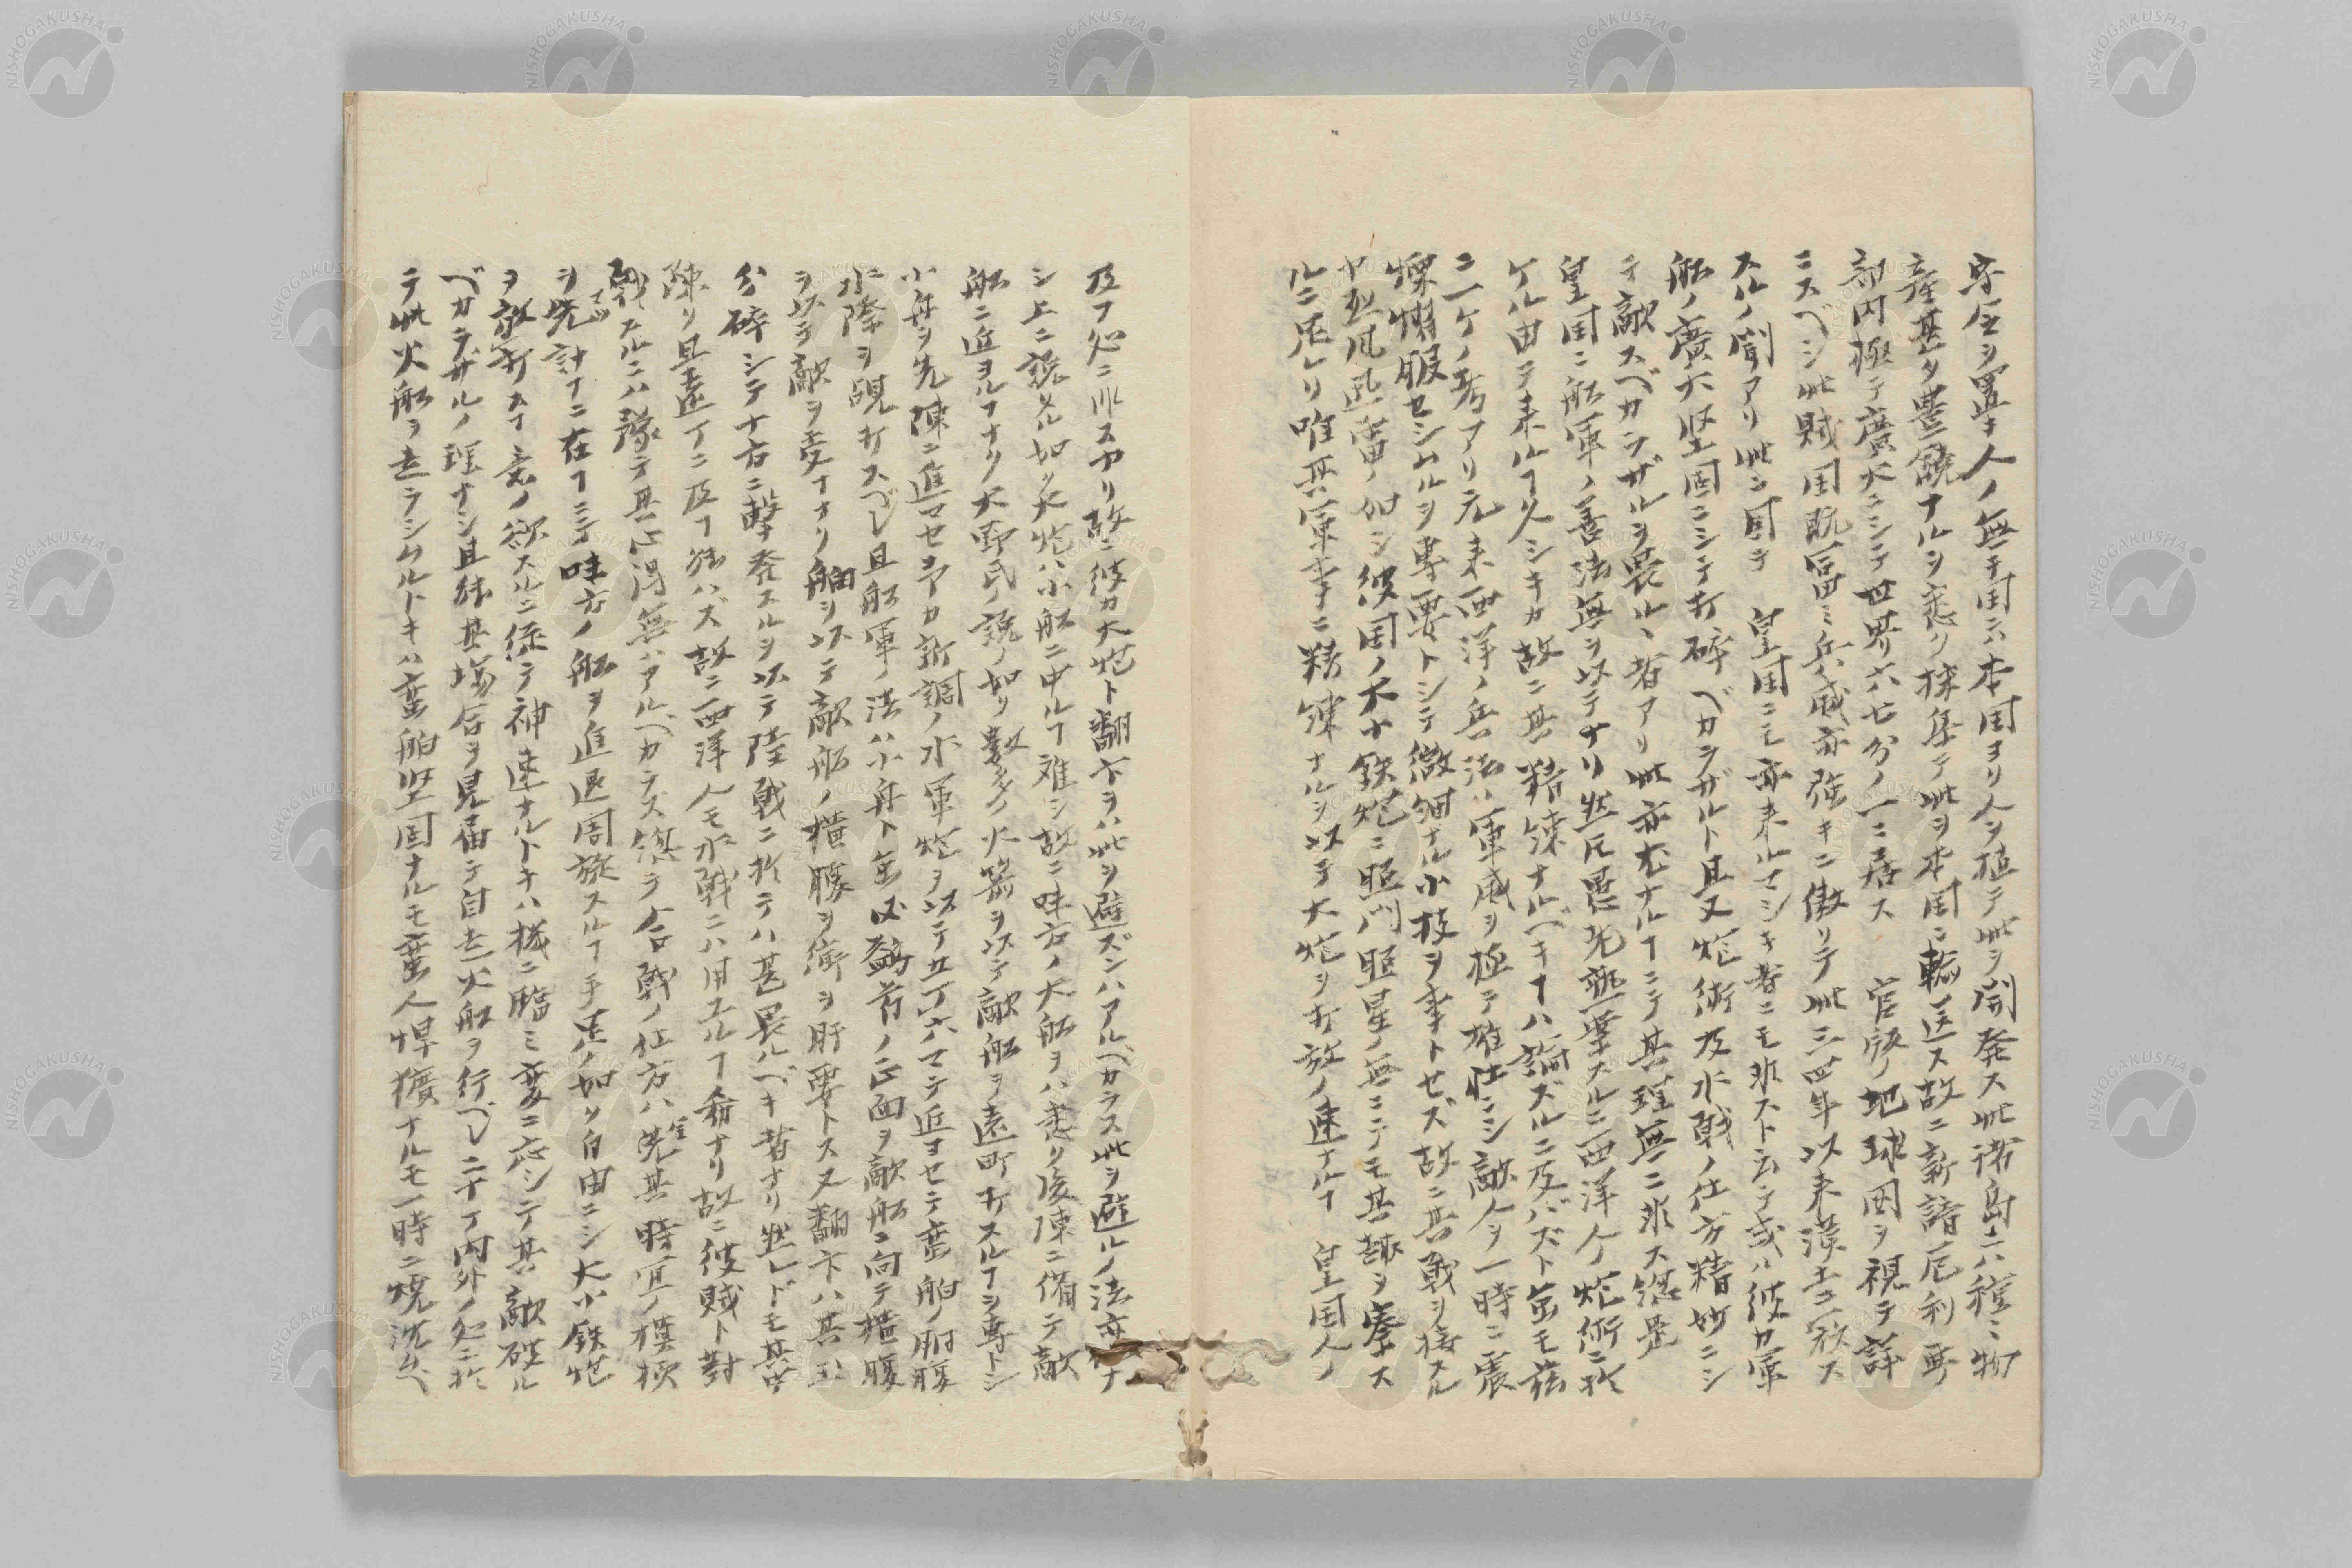 字左ヲ置キ人ノ無キ国ニハ本国ヨリ人ヲ植テ此ヲ開発ス此諸島ニハ種々物
産甚タ豊饒ナルヲ悉ク採集テ此ヲ本国ニ輸送ス故ニ新諳厄利亜
部内極テ廣大ニシテ世界六七分ノ一ニ居ス 官版ノ地球図ヲ視テ詳
ニスベシ此賊国既富ミ兵威亦強キニ傲リテ此三四年以来漢土ニ寇ス
スルノ聞アリ此ニ因テ 皇国ニモ亦来ルマシキ者ニモ非スト云テ或ハ彼カ軍
船ノ廣大堅固ニシテ打碎ベカラザルト且又炮術及水戦ノ仕方精妙ニシ
テ敵スベカラザルヲ畏ルヽ者アリ此亦尤ナルヿニテ其理無ニ非ス然是
皇国ニ船軍ノ善法無ヲ以テナリ然圧愚老熟察スルニ西洋人ケ炮術ニ於
ケル由テ来ルヿ久シキカ故ニ其精錬ナルベキヿハ論ズルニ及バズト雖モ茲
ニ一ケノ考アリ元来西洋ノ兵法ハ軍威ヲ極テ雄壮ニシ敵人ヲ一時ニ震
慄慴服セシムルヲ専要トシテ微細ナル小技ヲ事トセズ故ニ其戦ヲ接スル
ヤ烈風迅雷ノ如シ彼国ノ大小鉄炮ニ照門照星ノ無ニテモ其趣ヲ察ス
ルニ足レリ唯其軍事ニ精錬ナルヲ以テ大炮ヲ打放ノ速ナルヿ 皇国人ノ
及フ処ニ非スヤリ故ニ彼カ大炮ト翻卞ヲハ此ヲ避ズンハアルベカラス此ヲ避ルノ法亦ナ
シ上ニ説タル如ク大炮ハ小船ニ中ルヿ難シ故ニ味方ノ大船ヲハ悉ク後陳ニ備テ敵
船ニ近ヨルヿナク大郭氏ノ説ノ如ク数多ノ火箭ヲ以テ敵船ヲ遠町打スルヿヲ専トシ
小舟ヲ先陳ニ進マセ予カ新調ノ水軍炮ヲ以テ五丁六丁マテ近ヨセテ蛮舶ノ胴腹
水際ヲ覘打スベシ且船軍ノ法ハ小舟ト雖必鷁首ノ正面ヲ敵船ニ向テ横腹
ヲ以テ敵ヲ受ナナリ舳ヲ以テ敵船ノ横腹ヲ衝ヲ肝要トス又翻卞ハ其玉
分碎シテ十方ニ撃発スルヲ以テ陸戦ニ於テハ甚畏ルベキ者ナリ然レドモ其中
陳リ且遠丁ニ及フ能ハズ故ニ西洋人モ水戦ニハ用ユルヿ希ナリ故ニ彼賊ト対
戦スルニハ豫テ其心得無ハアルベカラス然テ合戦ノ仕方ハ先其時宜ノ模様
ヲ先計ヿニ在ヿニテ味方ノ船ヲ進退周旋スルヿ手足ノ如ク自由ニシ大小鉄炮
ヲ放打スヿ意ノ欲スルニ係テ神速ナルトキハ機ニ臨ミ変ニ応シテ其敵破ル
ベカラザルノ理ナシ且能其場合ヲ見届テ自走火船ヲ行ベシ二十丁内外ノ処ニ於
テ此火船ヲ走ラシムルトキハ蛮舶堅固ナルモ蛮人悍獷ナルモ一時ニ焼沈ムベ